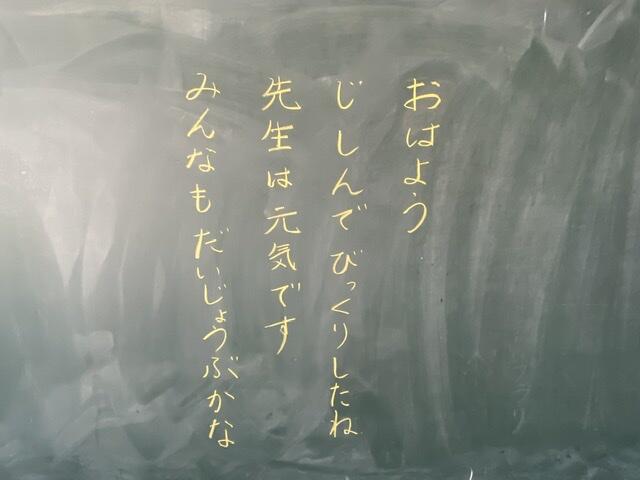 おはよう
じしんでびっくりしたね
先生は元気です
みんなもだいじょうぶかな